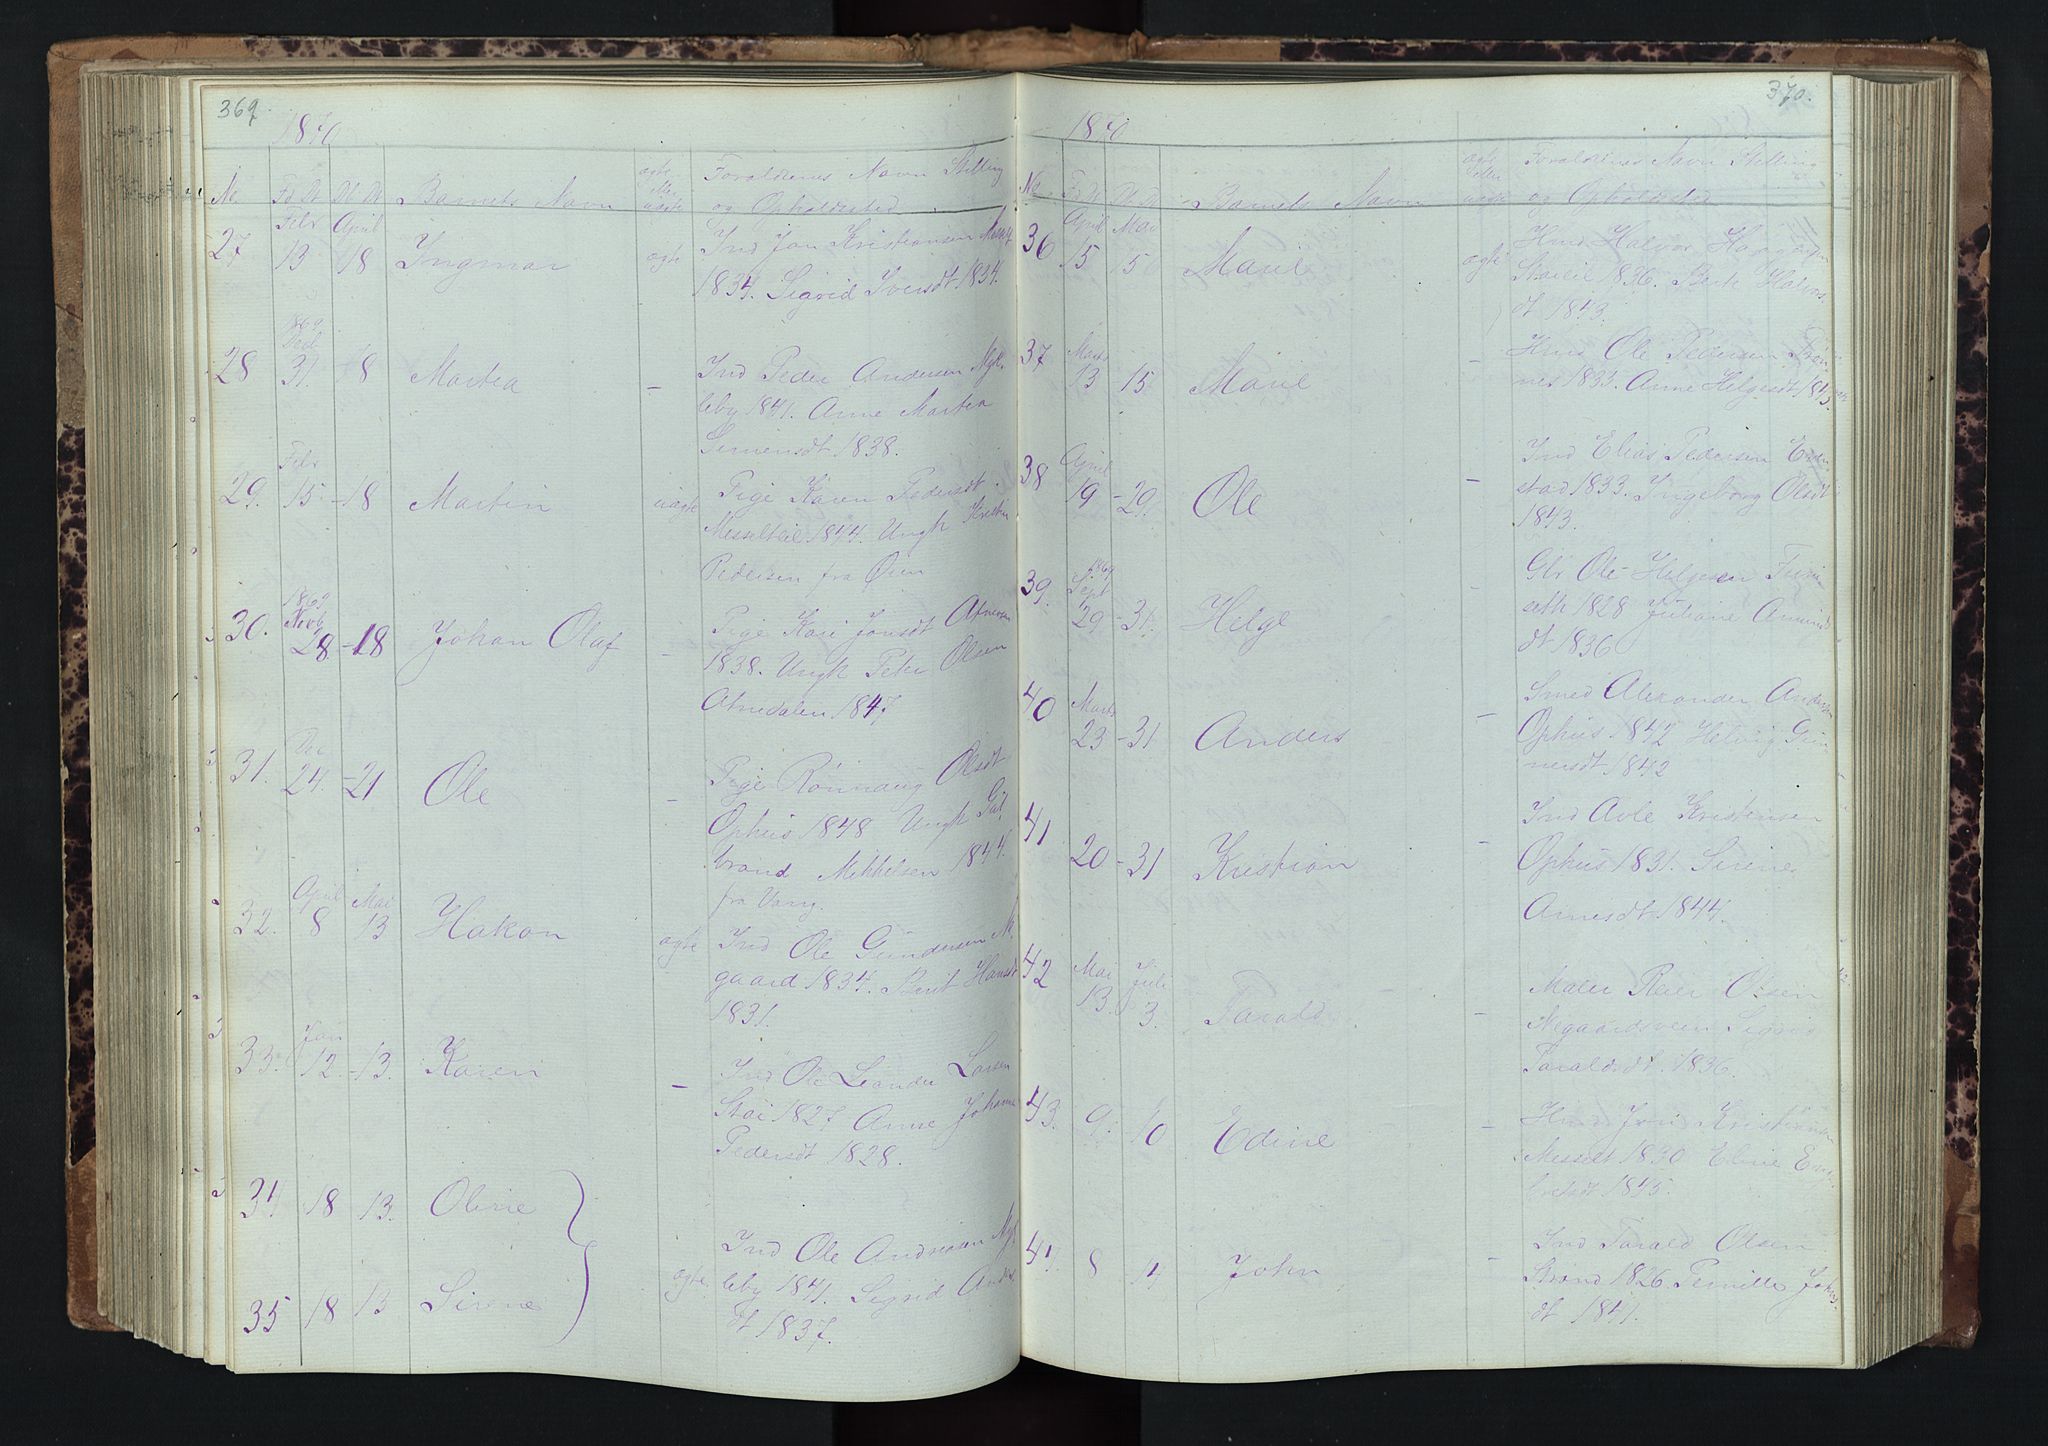 369.
1870
No. Fd Dt Db Dt Barnets Navn ægte eller uægte Forældrenes Navn Stilling og Opholdssted
27 Febr 13 April 18 Ingmar ægte Ind Jon Kristiansen
1834. Sigrid Iversdt 1834.
28 1869 Decb 31. 18 Martea – Ind Peder Andersen Myk-
leby 1841. Anne Martea
Simensdt 1838.
29. Febr 15 – 18 Martin uægte Pige Karen Pedersdt.
Messelteie 1844. Ungk Kristen
Pedersen fra Øien
30. 1869 Novb 28 – 18 Johan Olaf – Pige Kari Jonsdt Atneosen
1838. Ungk Peter Olsen
Atnedalen 1847
31. Dec 24. – 21 Ole – Pige Rönnaug Olsdt
Ophus 1848 Ungk Gul-
brand Mikkelsen 1844.
fra Vang.
32. April 8 Mai 13 Hakon ægte Ind Ole Gundersen N.
gaard 1834. Berit Hansdt
1831.
33. Jan 12. – 13. Karen – Ind Ole Leander Larsen
Stai 1827 Anne Johanne
Pedersdt 1828.
34 18 13. Oline
ægte Ind Ole Andreasen Myk
leby 1841. Sigrid Anders
dt 1837.
35 18 13 Sirene
370.
1870
No Fd Dt Db Dt Barnets Navn ægte eller uægte Forældrenes Navn Stilling og Opholdssted
36 April 15 Mai 15 Marie ægte Hmd Halvor
Staieie 1836. Berte Halvors
dt 1843.
37 Marts 13 15 Marie – Hmd Ole Pedersen Strøm
nes 1833. Anne Helgesdt 1843.
38 April 19 – 29. Ole – Ind Elias Pedersen Even
stad 1833. Ingeborg Olsdt
1843.
39. 1869 Sept 29 – 31. Helge – Gbr Ole Helgesen Furu
seth 1828 Juliane Amunds
dt 1836
40 Marts 23 – 31 Anders – Smed Alexander Andersen
Ophus 1842 Helvig Gun
nersdt 1842
41 20 – 31 Kristian – Ind Avle Kristensen
Ophus 1831. Sirene
Arnesdt 1844.
42 Mai 13. Juli 3. Tarald – Maler Reier Olsen
Negaardsveen Sigrid
Taraldsdt. 1836.
43. 9. 10 Edine – Hmd Jon Kristiansen
Messelt 1830 Eline Eng
bretsdt 1845.
44. 8 14 John – Ind Tarald Olsen
Strand 1826 Pernille Johns
dt 1841.